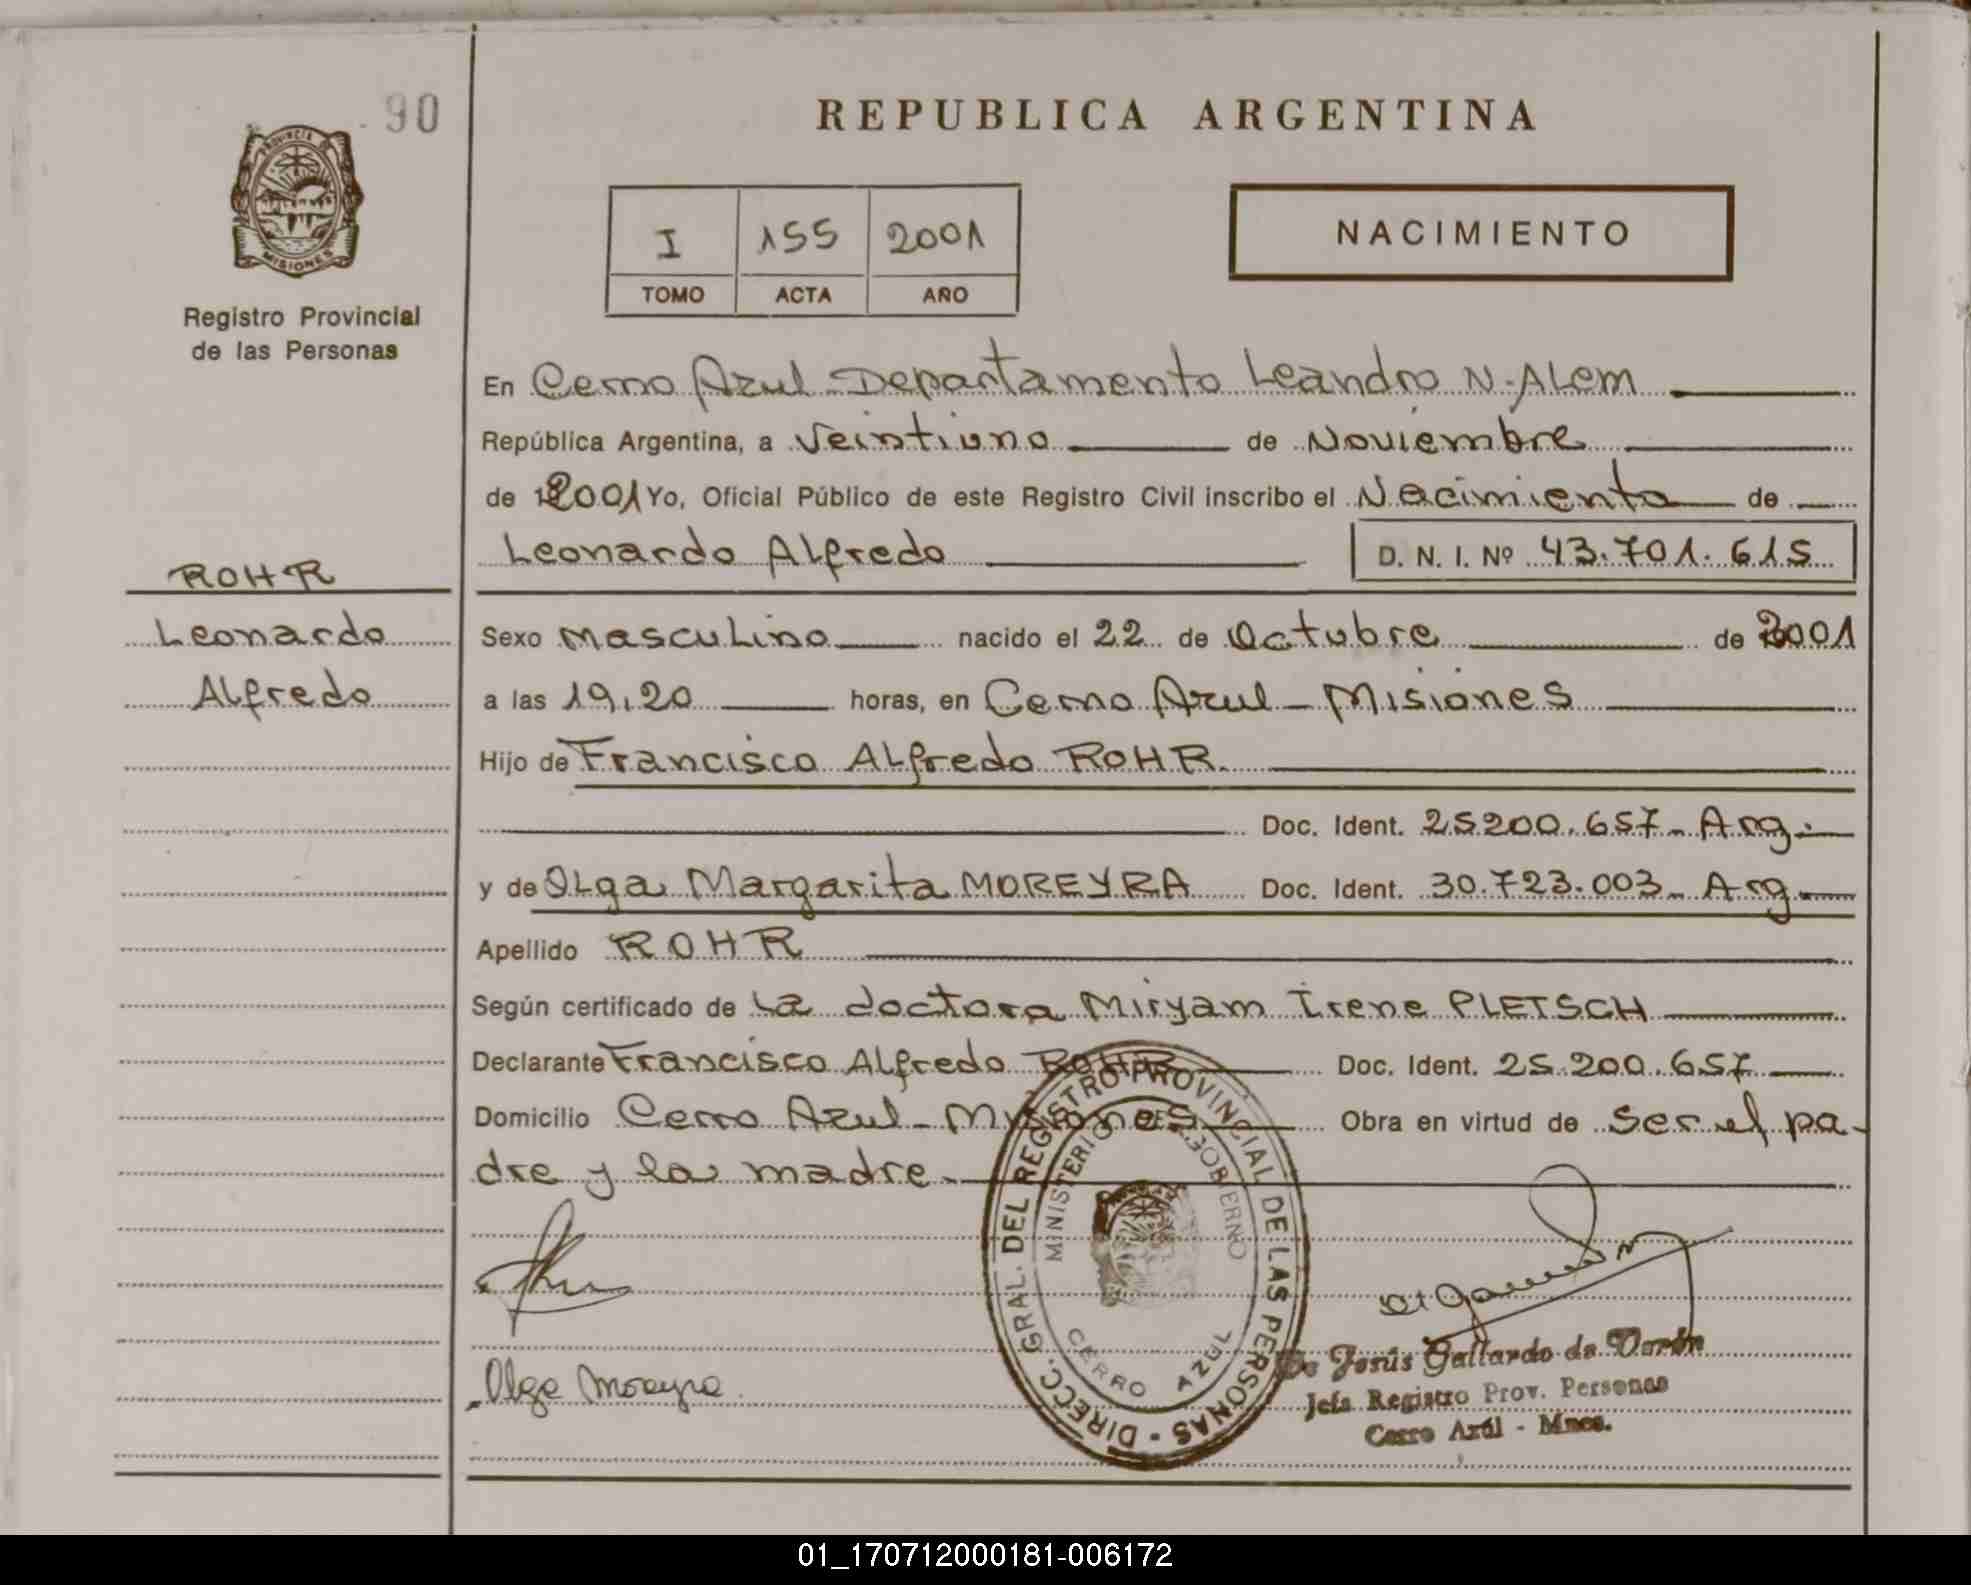 90
REPUBLICA ARGENTINA
PROVINCIA DE
MISIONES
Registro Provincial
de las Personas
I 155 2001
TOMO ACTA AÑO
NACIMIENTO
En Cerro Azul Departamento Leandro N. Alem
República Argentina, a Veintiuno de Noviembre
de 2001 Yo, Oficial Público de este Registro Civil inscribo el Nacimiento de
Leonardo Alfredo D. N. I. Nº 43.701.615
ROHR
Leonardo
Alfredo
Sexo masculino nacido el 22 de Octubre de 2001
a las 19,20 horas, en Cerro Azul - Misiones
Hijo de Francisco Alfredo ROHR
Doc. Ident. 25200.657 - Arg.
y de Olga Margarita MOREYRA Doc. Ident. 30.723.003 - Arg.
Apellido ROHR
Según certificado de La doctora Miryam Irene PLETSCH
Declarante Francisco Alfredo ROHR Doc. Ident. 25.200.657
Domicilio Cerro Azul - Misiones Obra en virtud de Ser el pa-
dre y la madre.
DIRECC. GRAL. DEL REGISTRO PROVINCIAL DE LAS PERSONAS -
MINISTERIO DE GOBIERNO
CERRO AZUL
Olga Moreyra.
De Jesús Gallardo de
Jefa Registro Prov. Personas
Cerro Azúl - Mnes.
01_170712000181-006172